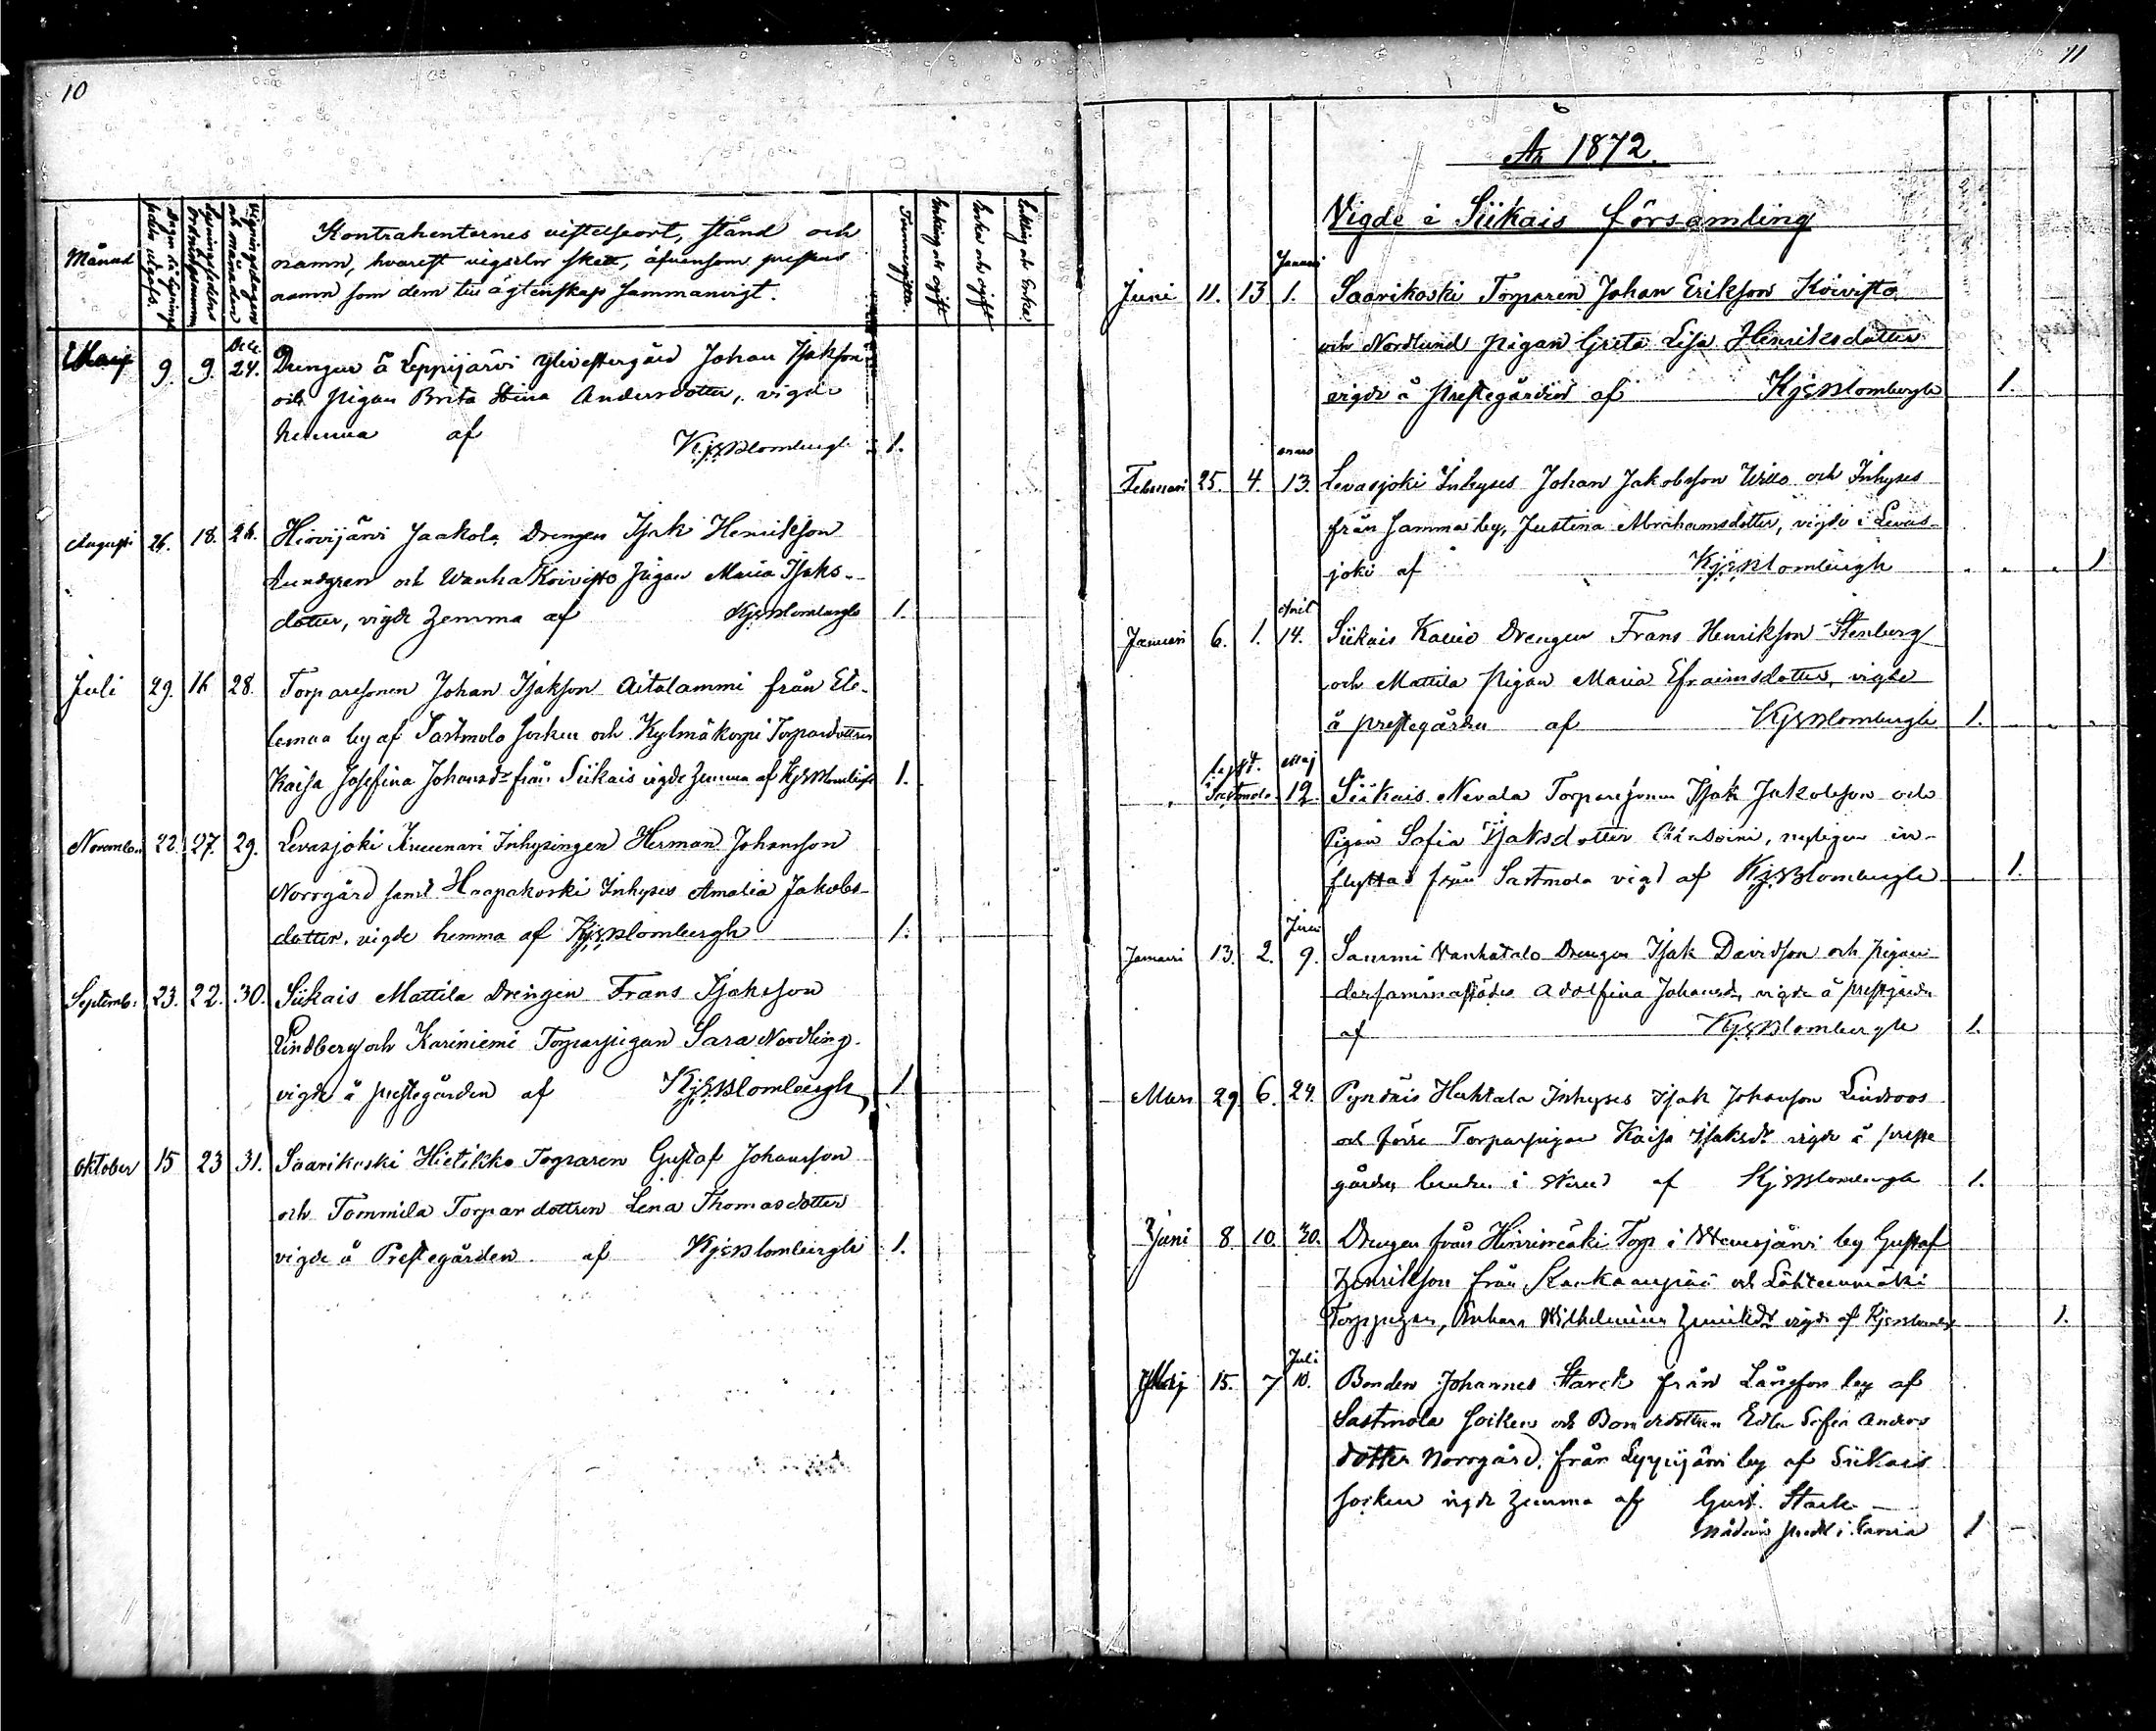 10
Månad
Dagen då lysningssedeln utgafs.
Lysningssedelns ordningsnumm
Vigningsdagen och månaden
Kontrahenternes vistelseort, stånd och
namn, hvarest vigseln skett, äfvensom prestens
namn som dem till ägtenskap sammanvigt.
Enkling och Enka.
Maij 9. 9. Dec. 24. Drengen å Leppijärvi Ylivestergård Johan Isakson
och pigan Brita Stina Andersdotter, vigde
hemma af KjEBlombergh 1.
Augusti 26. 18. 26. Hirvijärvi Jaakola Drengen Isak Henrikson
Lundgren och Wanha Koivisto pigan Maria Isaks-
dotter, vigde hemma af KjEBlombergh 1.
Juli 29. 16 28. Torparesonen Johan Isakson Aitalammi från Ete-
lemaa by af Sastmola socken och Kylmäkorpi Torpardottren
Kaisa Josefina Johansdr från Siikais vigde hemma af KjEBlombergh 1.
Novemb. 22. 27. 29. Levasjoki Inhysingen Herman Johansson
Norrgård samt Haapakoski Inhyses Amalia Jakobs-
dotter, vigde hemma af KjEBlombergh 1.
Septemb. 23. 22. 30. Siikais Mattila Drengen Frans Isaksson
Lindberg och Kariniemi Torparpigan Sara Nordling
vigde å prestegården af KjEBlombergh 1
Oktober 15 23 31. Saarikoski Hietikko Torparen Gustaf Johansson
och Tommila Torpardottren Lena Thomasdotter
vigde å Prestegården af KjEBlombergh 1.
11
År 1872.
Vigde i Siikais församling
Januari
Juni 11. 13 1. Saarikoski Torparen Johan Erikson Koivisto
och Nordlund pigan Greta Lisa Henriksdotter
vigde å prestegården af KjEBlombergh 1.
mars
Februari 25. 4. 13. Levasjoki Inhyses Johan Jakobsson Willo och Inhyses
från samma by, Justina Abrahamsdotter, vigde i Levas-
joki af KjEBlombergh 1
April
Januari 6. 1. 14. Siikais Kallio Drengen Frans Henrikson Stenberg
och Mattila pigan Maria Efraimsdotter, vigde
å prestegården af KjEBlombergh 1.
lyst. Maj
i Sastmola 12 Siikais Nevala Torparesonen Isak Jakobsson och
Pigan Sofia Isaksdotter, nyligen in-
flyttad från Sastmola vigd af KjEBlombergh 1.
Juni
Januari 13. 2. 9. Sammi Vanhatalo Drengen Isak Davidson och pigan
dersammastädes Adolfina Johansdr, vigde å prestgården
af KjEBlombergh 1.
Mars 29. 6. 24. Huhtala Inhyses Isak Johansson Lindroos
och Torparpigan Kaisa Isaksdr vigde å preste
gården i af KjEBlombergh 1.
Juni 8. 10. 30. Drengen från Torp i by Gustaf
Henrikson från Kankaanpää och Lähteenmäki
Torppigan, Enkan Wilhelmina Henriksdr vigde af KjEBlombergh 1.
Juli
Maj 15. 7 10. Bonden Johannes Starck från Långfors by af
Sastmola socken och Bondedottren Edla Sofia Anders
dotter Norrgård, från Leppijärvi by af Siikais
socken vigde hemma af Gust. Starck
1